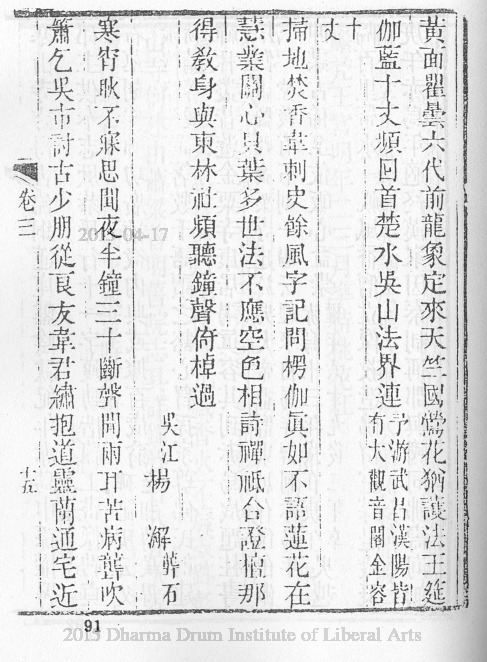 黃面瞿曇六代前龍象定來天竺國鶯花猶護法王筵
伽藍十丈頻回首楚水吳山法界連予游武昌漢陽皆
有大觀音閣金容
十
丈
掃地焚香韋刺史餘風字記問楞伽眞如不語蓮花在
慧業關心貝葉多世法不應空色相詩禪祗合證檀那
得敎身與東林社頻聽鐘聲倚棹過
吳江楊澥聾石
寒宵耿不寐思聞夜半鐘三十斷聲聞兩耳苦病聾吹
簫乞吳市討古少朋從良友韋君繡抱道靈蘭通宅近
卷三
十五
91
2013-04-17
2013 Dharma Drum Institute of Liberal Arts